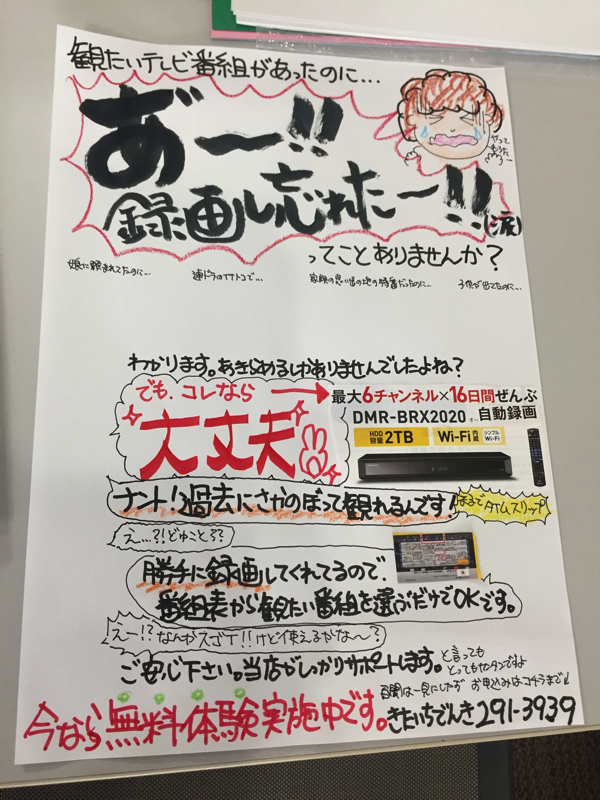 観たいテレビ番組があったのに...
あ゛ー!!
やって
もうた
録画し忘れたー!!(涙)
ってことありませんか？
娘に頼まれてたのに... 連ドラのイイトコで... 家族の思い出の地の特番だったのに... 子供が出てたのに...
わかります。あきらめるしかありませんでしたよね？
でも、コレなら
大丈夫
最大6チャンネル×16日間ぜんぶ
DMR-BRX2020 自動録画
HDD容量 2TB Wi-Fi内蔵 シンプルWi-Fi
ナント!!過去にさかのぼって観れるんです! まるでタイムスリップ
え...?!どゆこと??
勝手に録画してくれてるので、
番組表から観たい番組を選ぶだけでOKです。
えー!?なんかスゴイ!!けど使えるかな〜?
ご安心下さい。当店がしっかりサポートします。と言っても
とってもカンタンですよ
百聞は一見にしかず お申込みはコチラまで↓
今なら無料体験実施中です。きたいちでんき291-3939